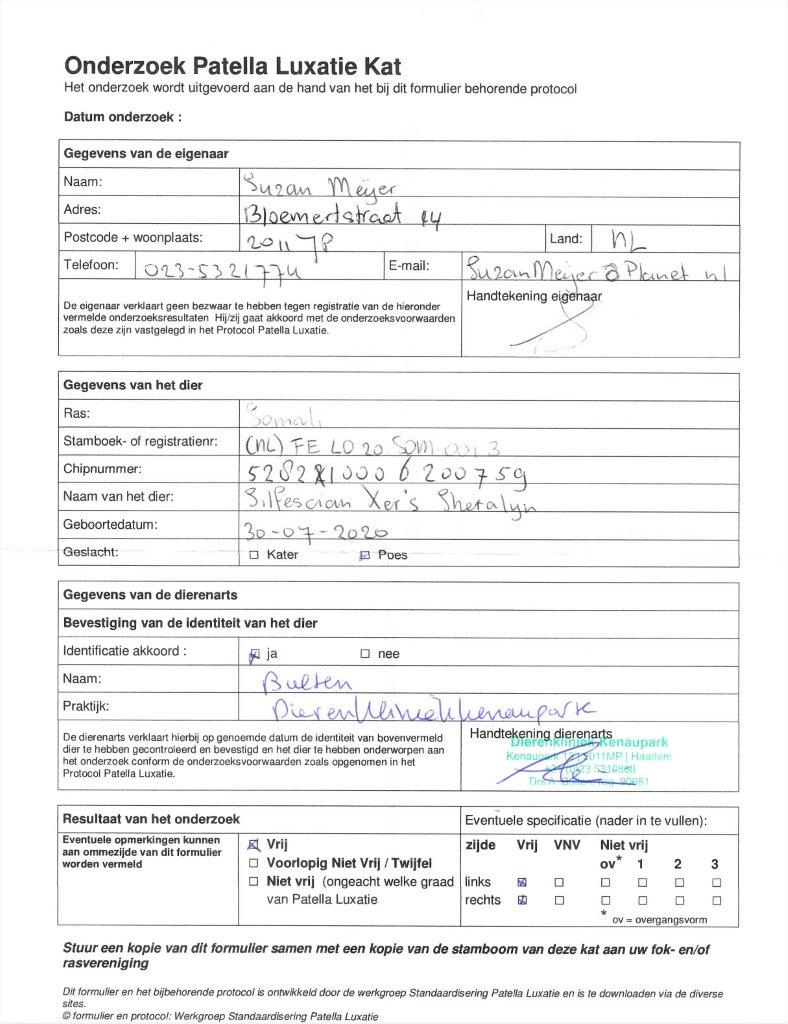 Onderzoek Patella Luxatie Kat
Het onderzoek wordt uitgevoerd aan de hand van het bij dit formulier behorende protocol
Datum onderzoek :
Gegevens van de eigenaar
Naam: Suzan Meijer
Adres: Bloemertstraat 14
Postcode + woonplaats: 2011 YP Land: NL
Telefoon: 023-5321774 E-mail: SuzanMeijer@Planet nl
De eigenaar verklaart geen bezwaar te hebben tegen registratie van de hieronder
vermelde onderzoeksresultaten Hij/zij gaat akkoord met de onderzoeksvoorwaarden
zoals deze zijn vastgelegd in het Protocol Patella Luxatie.
Handtekening eigenaar
Gegevens van het dier
Ras: Somali
Stamboek- of registratienr: (NL) FE LO 20 SOM
Chipnummer:
Naam van het dier: Silfescian Xer's Sheralyn
Geboortedatum: 30-07-2020
Geslacht: Kater Poes
Gegevens van de dierenarts
Bevestiging van de identiteit van het dier
Identificatie akkoord : ja nee
Naam: Bulten
Praktijk: Dierenkliniek Kenaupark
De dierenarts verklaart hierbij op genoemde datum de identiteit van bovenvermeld
dier te hebben gecontroleerd en bevestigd en het dier te hebben onderworpen aan
het onderzoek conform de onderzoeksvoorwaarden zoals opgenomen in het
Protocol Patella Luxatie.
Handtekening dierenarts
Dierenkliniek Kenaupark
2011MP | Haarlem
Resultaat van het onderzoek
Eventuele opmerkingen kunnen
aan ommezijde van dit formulier
worden vermeld
Vrij
Voorlopig Niet Vrij / Twijfel
Niet vrij (ongeacht welke graad
van Patella Luxatie
Eventuele specificatie (nader in te vullen):
zijde Vrij VNV Niet vrij
ov* 1 2 3
links
rechts
* ov = overgangsvorm
Stuur een kopie van dit formulier samen met een kopie van de stamboom van deze kat aan uw fok- en/of
rasvereniging
Dit formulier en het bijbehorende protocol is ontwikkeld door de werkgroep Standaardisering Patella Luxatie en is te downloaden via de diverse
sites.
© formulier en protocol: Werkgroep Standaardisering Patella Luxatie